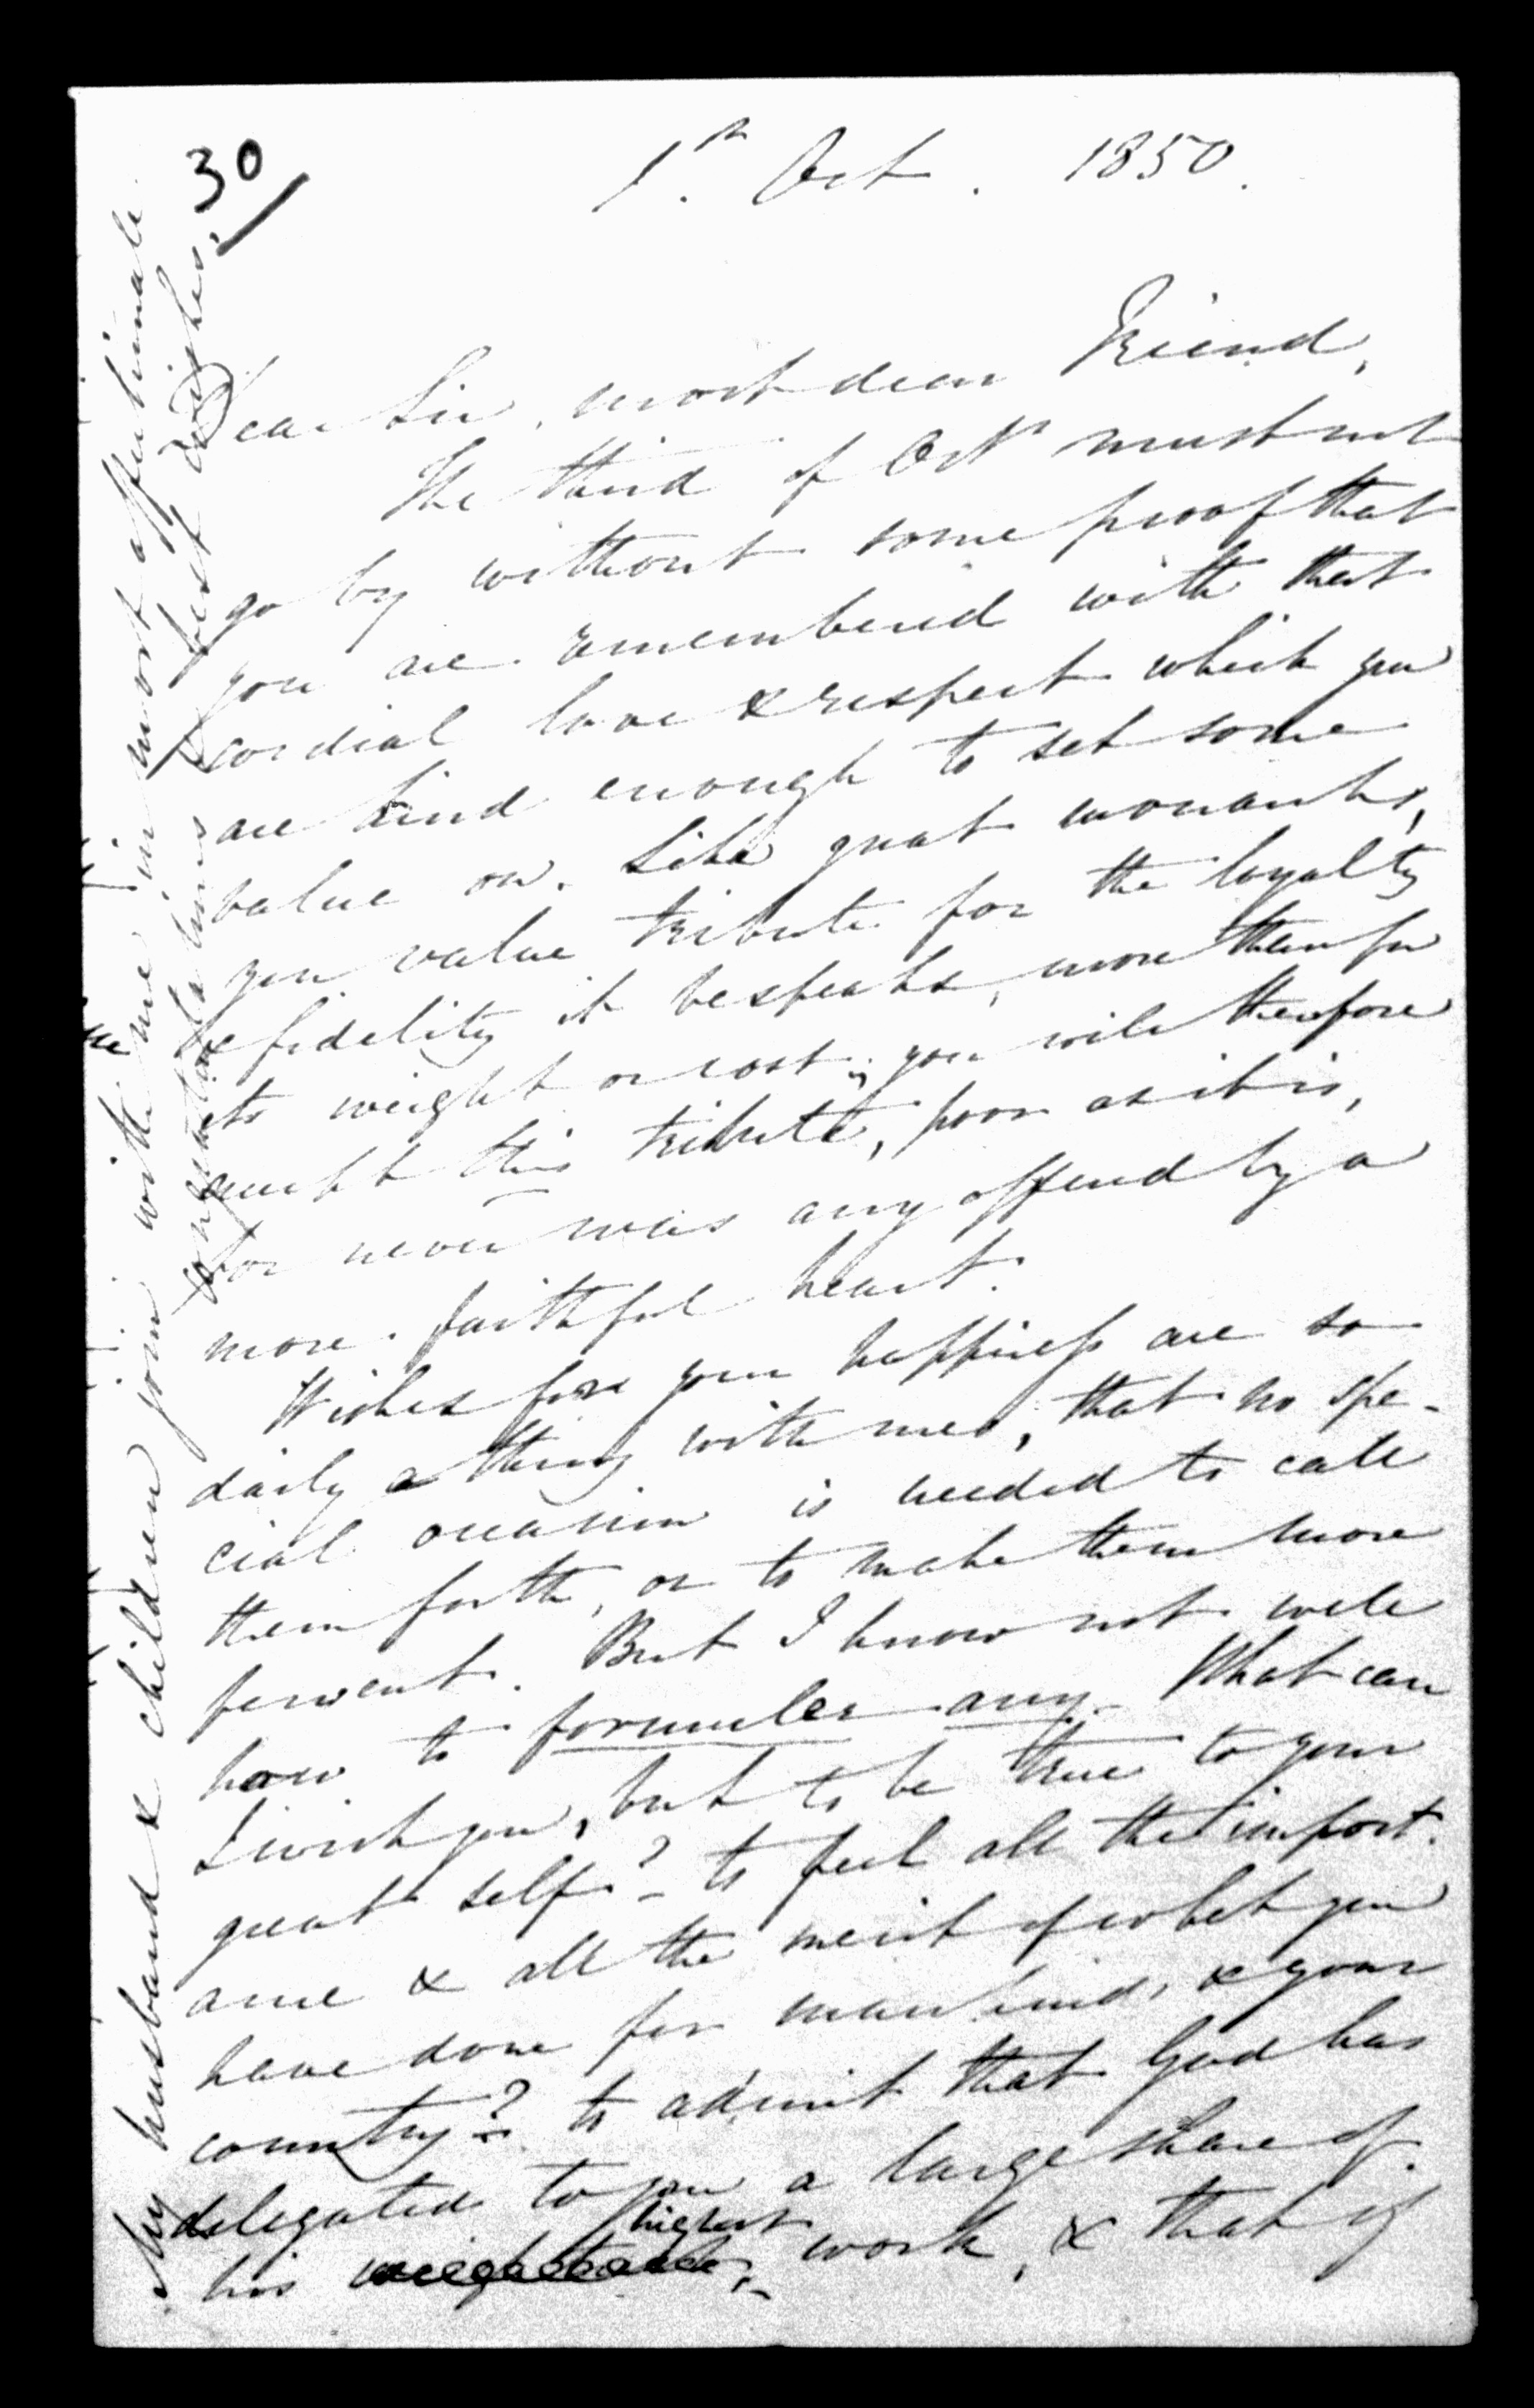 30
1st. Oct. 1850.
Dear Sir, most dear Friend,
The third of Octr must not
go by without some proof that
you are remembered with that
cordial love & respect which you
are kind enough to set some
value on. Like great monarchs,
you value tribute for the loyalty
& fidelity it bespeaks, more than for
its weight or cost; you will therefore
accept this tribute, poor as it is,
for never was any offered by a
more faithful heart.
Wishes for your happiness are so
daily a thing with me, that no spe-
cial occasion is needed to call
them forth, or to make them more
fervent. But I know not well
how to formuler any. What can
I wish you, but to be true to your
great self? – to feel all the import-
ance & all the merit of what you
have done for mankind, & your
country? – to admit that God has
delegated to you a large share of
his highest work, & that of
My husband & children join with me in most affectionate
congratulations & best wishes.